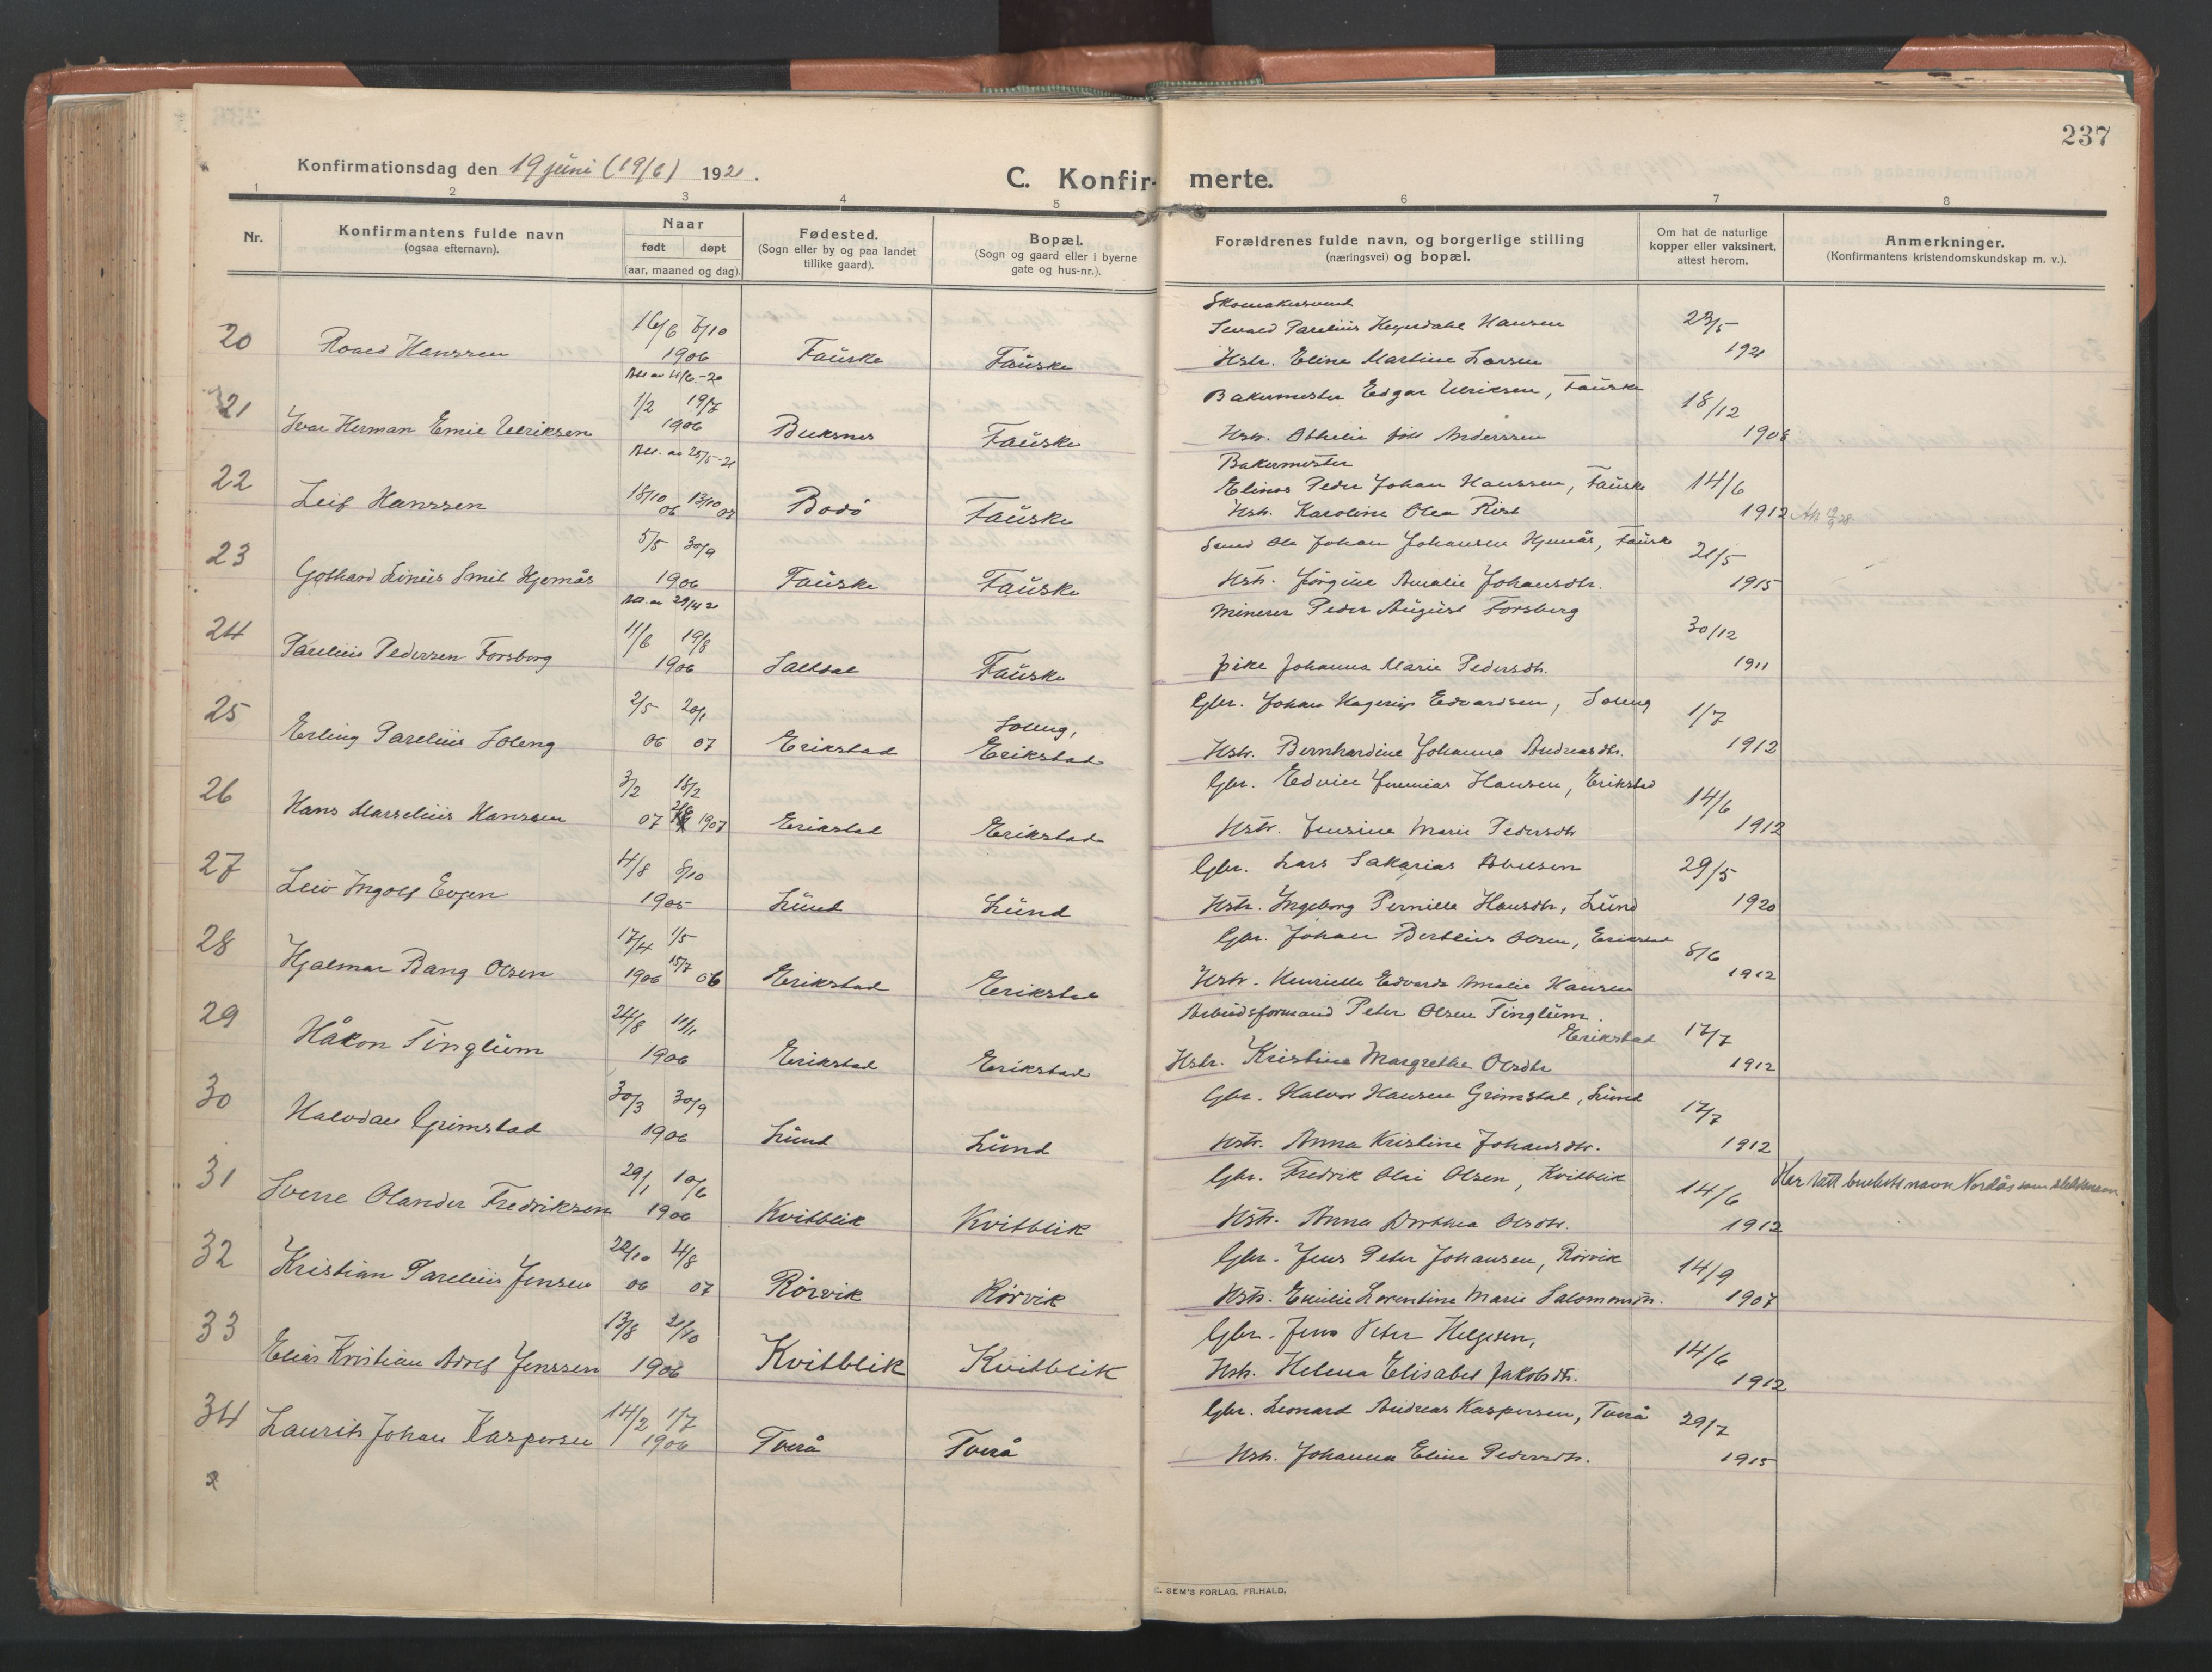 237
Konfirmationsdag den 19 juni (19/6) 1921.
C. Konfirmerte.
1 2 3 4 5 6 7 8
Nr.
Konfirmantens fulde navn
(ogsaa efternavn).
Naar
født døpt
(aar, maaned og dag).
Fødested.
(Sogn eller by og paa landet
tillike gaard).
Bopæl.
(Sogn og gaard eller i byerne
gate og hus-nr.).
Forældrenes fulde navn, og borgerlige stilling
(næringsvei) og bopæl.
Om hat de naturlige
kopper eller vaksinert,
attest herom.
Anmerkninger.
(Konfirmantens kristendomskundskap m. v.).
Skomakersvend
20 16/6 7/10 Parelius Heyerdahl Hansen 28/5
Roald Hanssen 1906 Fauske Fauske Hstr. Eline Martine Larsen 1921
21 1/2 19/7 Bakermester Edgar Ulriksen, Fauske 18/12
Ivar Herman Emil Ulriksen 1906 Buksnes Fauske Hstr. Othelie Anderssen 1908
Bakermester
22 18/10 06 13/10 Elinos Peder Johan Hanssen, Fauske 14/6
Leif Hanssen Bodö Fauske Hstr. Karoline Olea Rist 1912
23 5/5 30/9 Ole Johan Johansen Hjemås, Fauske 21/5
Gothard Linius Smit Hjemås 1906 Fauske Fauske Hstr. Jörgine Amalie Johansdtr. 1915
24 11/6 19/8 Minerer Peder August Forsberg 30/12
Parelius Pedersen Forsberg 1906 Saltdal Fauske pike Johanna Marie Pedersdtr. 1911
25 2/5 20/1 Gbr. Johan Hagerup Edvardsen, Soleng 1/7
Erling Parelius Soleng 06 07 Erikstad Soleng, Erikstad Hstr. Bernhardine Johanna Andreasdtr. 1912
26 3/2 18/2 Gbr. Edvin Jeremias Hansen, Erikstad 14/6
Hans Marselius Hanssen 07 1907 Erikstad Erikstad Hstr. Jensine Marie Pedersdtr 1912
27 4/8 8/10 Gbr. Lars Sakarias 29/5
Leiv Ingolf Evjen 1905 Lund Lund Hstr. Ingeborg Pernille Hansdtr, Lund 1920
28 17/4 1/5 Gbr. Johan Bertheus Olsen, Erikstad 8/6
Hjalmar Bang Olsen 1906 15/7 06 Erikstad Erikstad Hstr. Henrielle Edvarda Amalie Hansen 1912
29 24/8 11/11 Arbeidsformand Peter Olsen Tinglum. Erikstad 17/7
Håkon Tinglum 1906 Erikstad Erikstad Hstr. Kristine Margrethe Olsdtr 1912
30 30/3 30/9 Gbr. Halvor Hansen Grimstad, Lund 17/7
Halvdan Grimstad 1906 Lund Lund Hstr. Anna Kristine Johansdtr. 1912
31 29/1 10/6 Gbr. Fredrik Olai Olsen, Kvitblik 14/6 Har tatt brukets navn Nordås som slektsnavn
Sverre Olander Fredriksen 1906 Kvitblik Kvitblik Hstr. Anna Dorthea Olsdtr. 1912
32 20/10 4/8 Gbr. Jens Peter Johansen, Rörvik 14/9
Kristian Parelius Jensen 06 07 Rörvik Rörvik Hstr. Emilie Lorentine Marie Salomonsdtr. 1907
33 13/8 21/10 Gbr. Jens Peter Helgesen, 14/6
Elias Kristian Adolf Jenssen 1906 Kvitblik Kvitblik Hstr. Helena Elisabet Jakobsdtr. 1912
34 14/2 1/7 Gbr. Leonard Andreas Kaspersen, Tverå 29/7
Laurits Johan Kaspersen 1906 Tverå Tverå Hstr. Johanna Eline Pedersdtr. 1915
E. SEM'S FORLAG, FR.HALD.